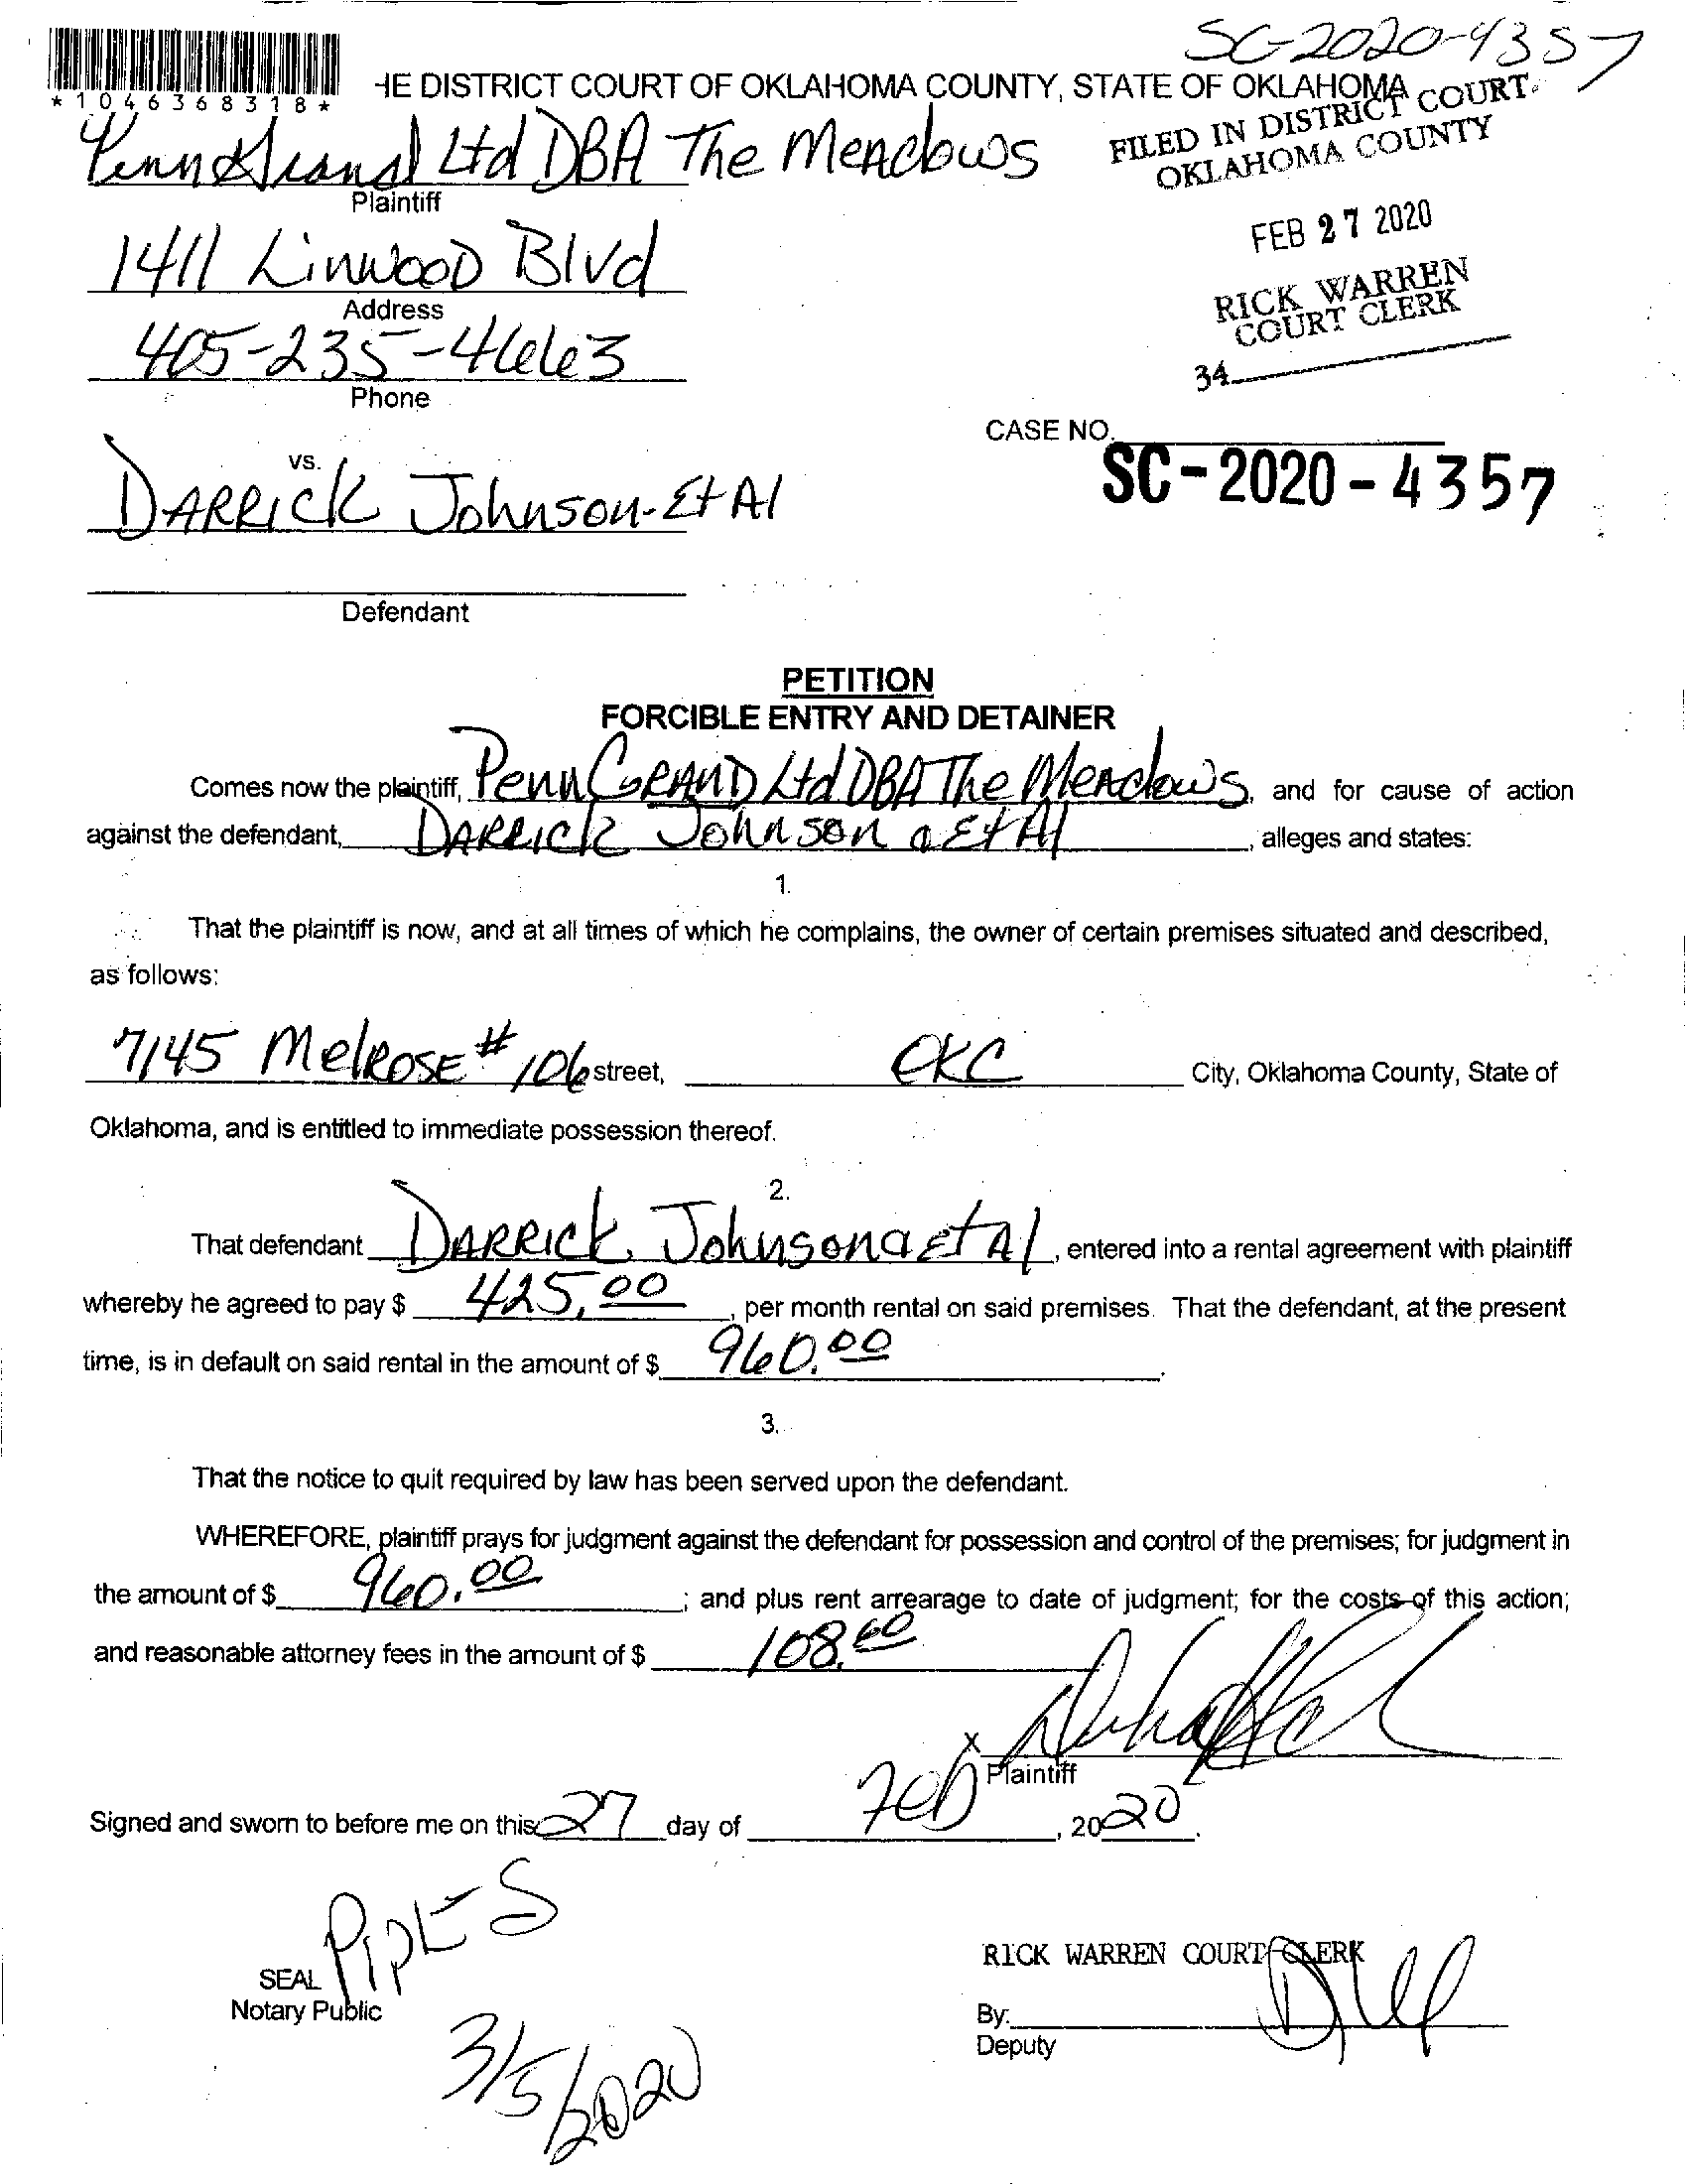 SC-2020-4357
*1046368318*
HE DISTRICT COURT OF OKLAHOMA COUNTY, STATE OF OKLAHOMA
FILED IN DISTRICT COURT
OKLAHOMA COUNTY
FEB 27 2020
RICK WARREN
COURT CLERK
34
Penn Grand Ltd DBA The Meadows
Plaintiff
1411 Linwood Blvd
Address
405-235-4663
Phone
CASE NO.
SC-2020-4357
vs.
DARRICK Johnson-Et Al
Defendant
PETITION
FORCIBLE ENTRY AND DETAINER
Comes now the plaintiff, Penn GRAND Ltd DBA The Meadows, and for cause of action
against the defendant, DARRICK Johnson a Et Al, alleges and states:
1.
That the plaintiff is now, and at all times of which he complains, the owner of certain premises situated and described,
as follows:
7145 MelROSE # 106 street, OKC City, Oklahoma County, State of
Oklahoma, and is entitled to immediate possession thereof.
2.
That defendant DARRICK Johnson a Et Al, entered into a rental agreement with plaintiff
whereby he agreed to pay $ 425.00, per month rental on said premises. That the defendant, at the present
time, is in default on said rental in the amount of $ 960.00.
3.
That the notice to quit required by law has been served upon the defendant.
WHEREFORE, plaintiff prays for judgment against the defendant for possession and control of the premises; for judgment in
the amount of $ 960.00; and plus rent arrearage to date of judgment; for the costs of this action;
and reasonable attorney fees in the amount of $ 108.60
X
Plaintiff
Signed and sworn to before me on this 27 day of Feb, 2020.
PIPES
SEAL
Notary Public
3/5/2020
RICK WARREN COURT CLERK
By:
Deputy